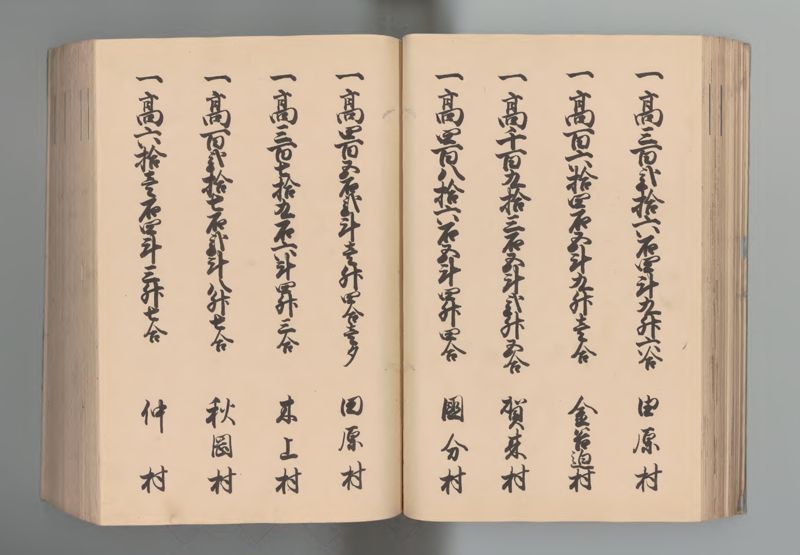 一高三百弐拾六石四斗九升六合 由原村
一高百六拾四石五斗九升壱合 金谷迫村
一高千百九拾三石五斗弐升五合 賀来村
一高四百八拾六石五斗四升四合 國分村
一高四百五石弐斗壱升四合壱夕 田原村
一高三百七拾九石六斗四升三合 来上村
一高百弐拾七石弐斗八升七合 秋岡村
一高六拾壱石四斗三升七合 仲村